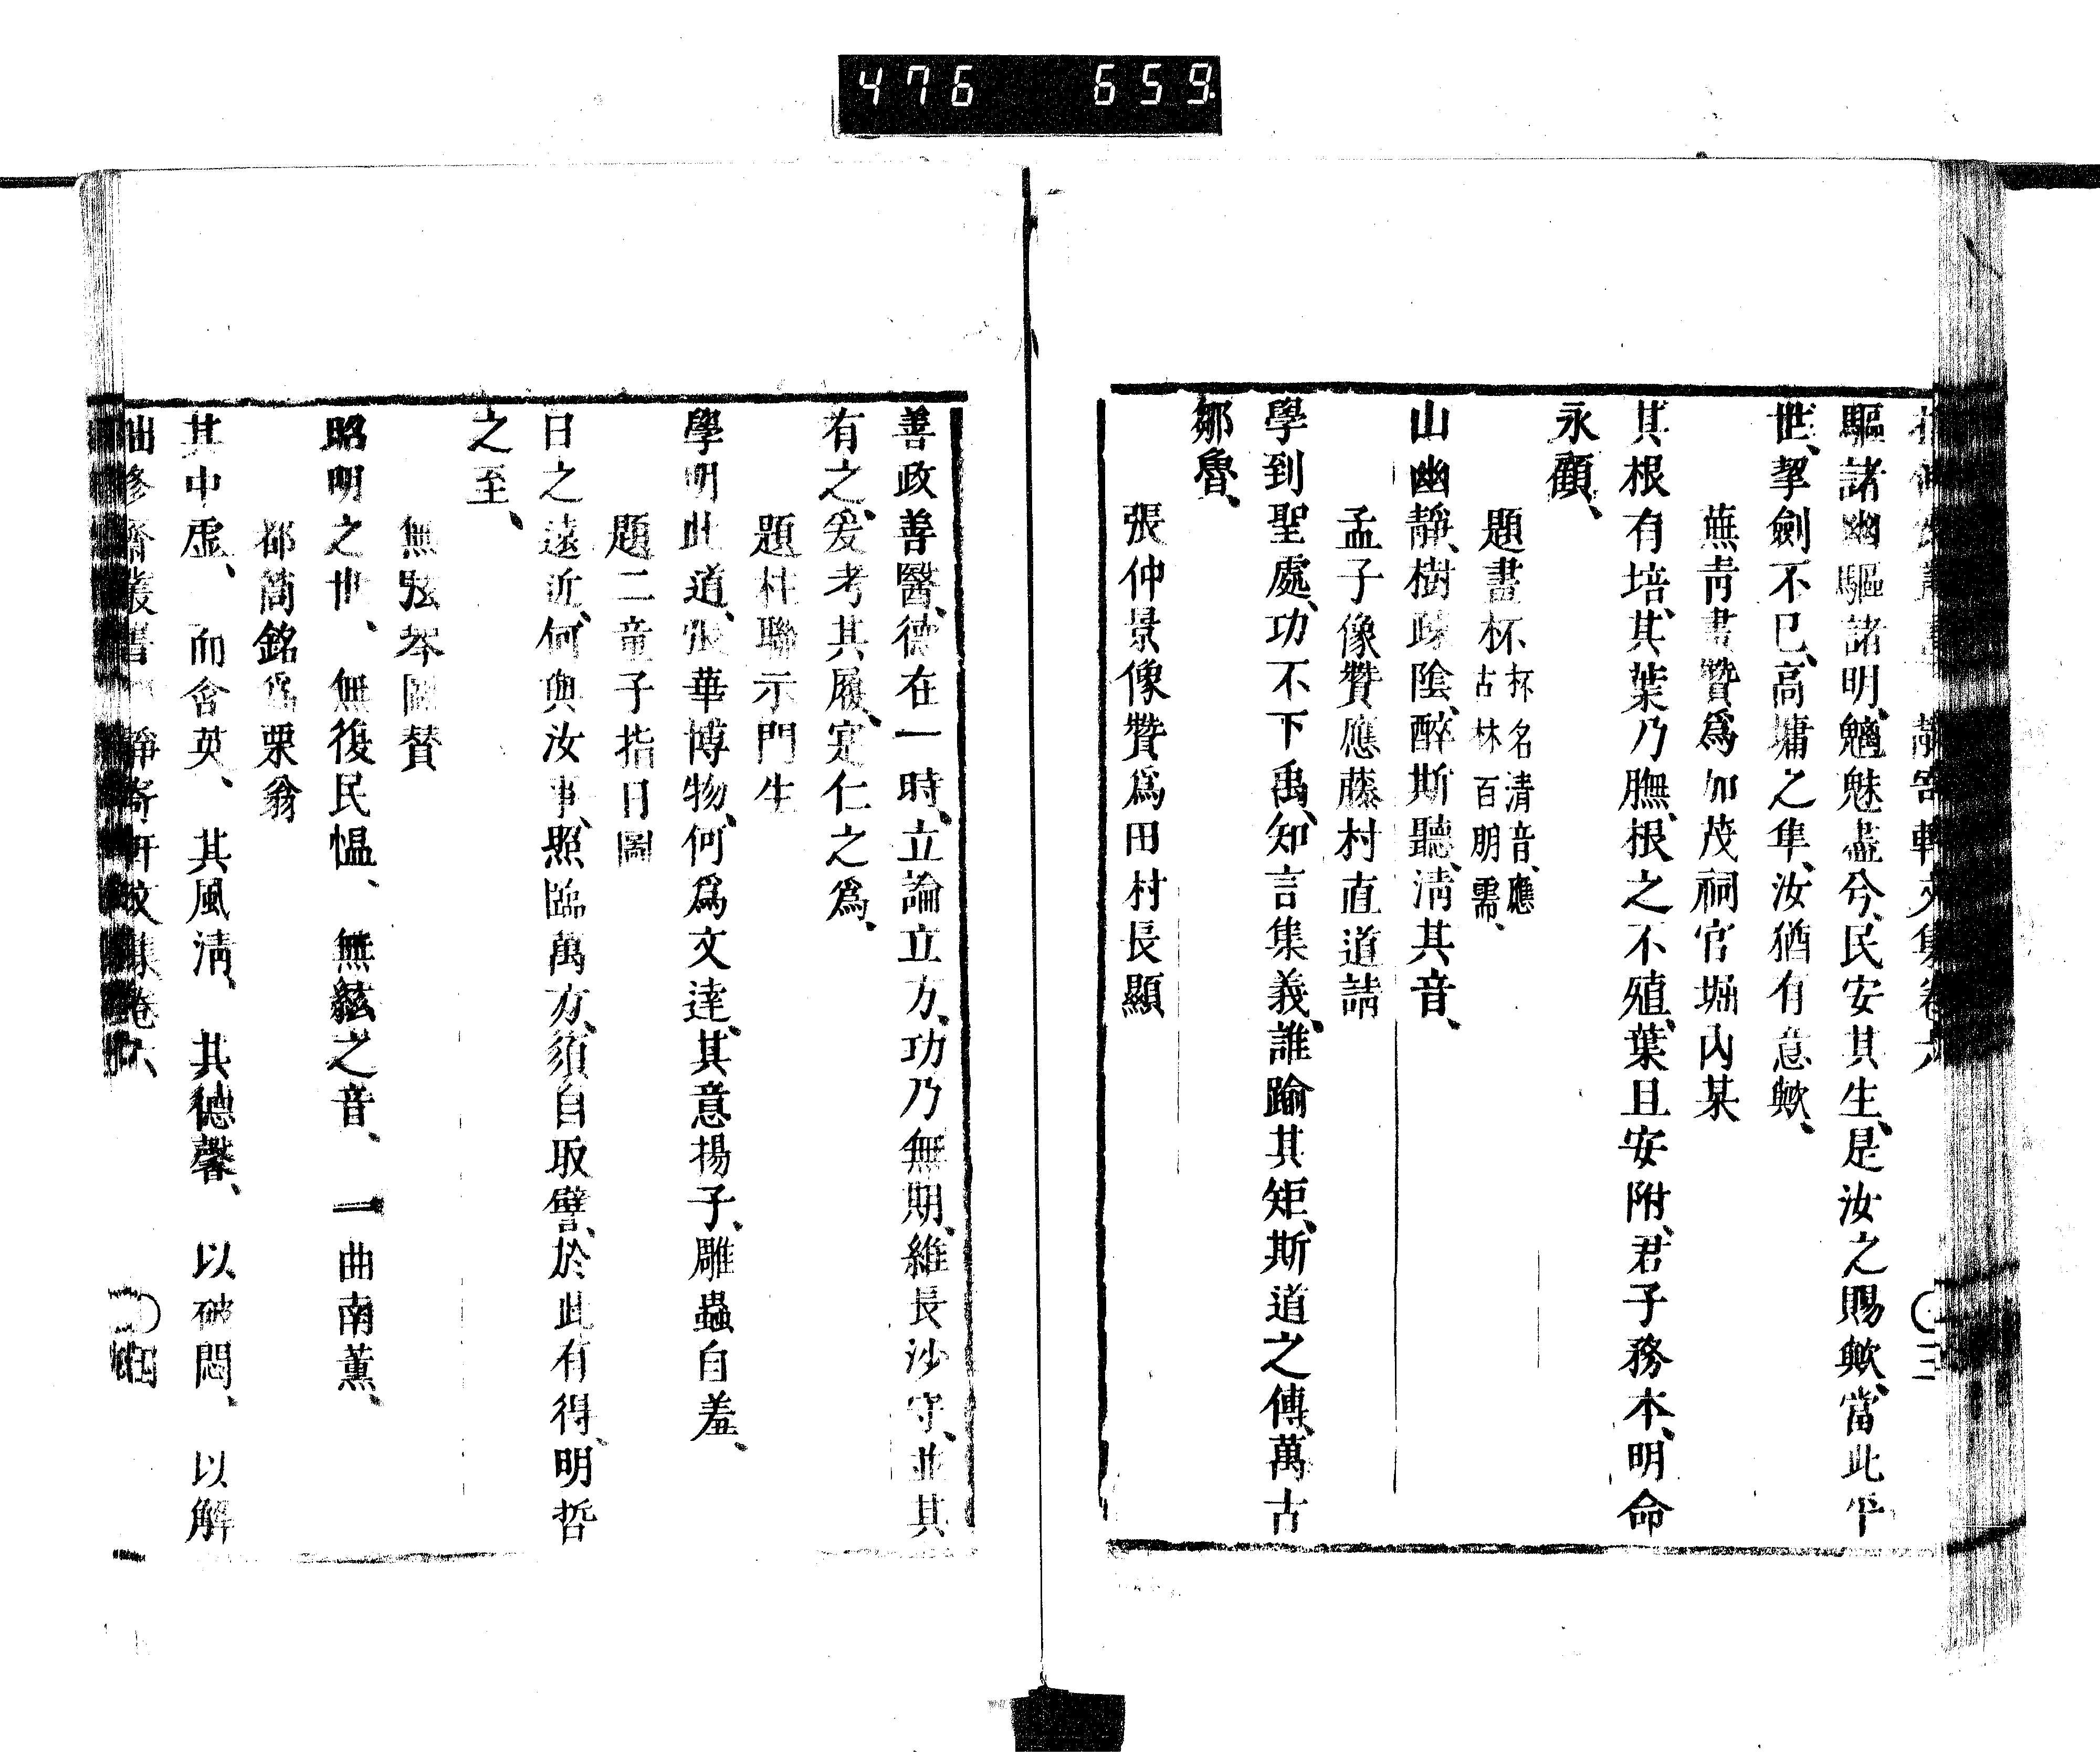 476 659
驅諸幽驅諸明、魑魅盡兮、民安其生、是汝之賜歟、當此乎
世、挈劍不已、高墉之隼、汝猶有意歟、
蕪青畫贊爲加茂祠官堀内某
其根有培、其葉乃膴、根之不殖、葉且安附、君子務本、明命
永顧、
題畫杯杯名清音、應古林百朋需、
山幽靜、樹疎陰、醉斯聽、清其音、
孟子像贊應藤村直道請
學到聖處、功不下禹、知言集義、誰踰其矩、斯道之傳、萬古
鄒魯、
張仲景像贊爲田村長顯
善政善醫、德在一時、立論立方、功乃無期、維長沙守、並其
有之、爰考其履、寔仁之爲、
題柱聯示門生
學明此道、張華博物、何爲文達、其意揚子、雕蟲自羞、
題二童子指日圖
日之遠近、何與汝事、照臨萬方、須自取譬、於此有得、明哲
之至、
無弦琴圖贊
昭明之世、無復民慍、無絃之音、一曲南薰、
郵筒銘爲栗翁
其中虛、而含英、其風淸、其德馨、以破悶、以解